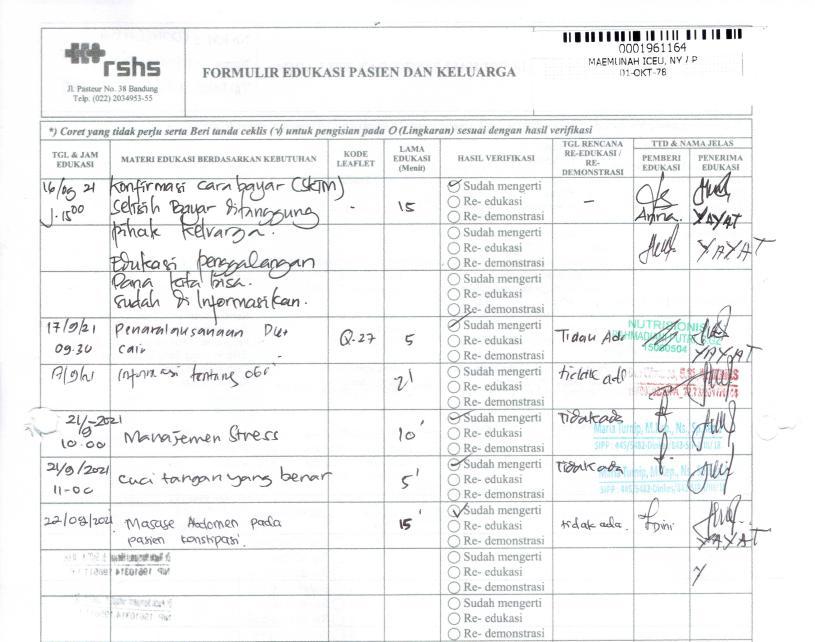 rshs
Jl. Pasteur No. 38 Bandung
Telp. (022) 2034953-55
FORMULIR EDUKASI PASIEN DAN KELUARGA
0001961164
MAEMUNAH ICEU, NY / P
01-OKT-78
*) Coret yang tidak perlu serta Beri tanda ceklis (√) untuk pengisian pada O (Lingkaran) sesuai dengan hasil verifikasi
TGL & JAM EDUKASI
MATERI EDUKASI BERDASARKAN KEBUTUHAN
KODE LEAFLET
LAMA EDUKASI (Menit)
HASIL VERIFIKASI
TGL RENCANA RE-EDUKASI / RE-DEMONSTRASI
TTD & NAMA JELAS
PEMBERI EDUKASI
PENERIMA EDUKASI
16/09 21
J. 15.00
Konfirmasi cara bayar (SKTM)
Selisih Bayar ditanggung
pihak keluarga.
- 15
Sudah mengerti
Re- edukasi
Re- demonstrasi
-
YAYAT
Edukasi penggalangan
Dana kita bisa.
Sudah di Informasikan.
Sudah mengerti
Re- edukasi
Re- demonstrasi
YAYAT
Sudah mengerti
Re- edukasi
Re- demonstrasi
17/9/21
09.30
Penatalaksanaan Diet
cair
Q.27
5
Sudah mengerti
Re- edukasi
Re- demonstrasi
Tidak Ada
NUTRISIONIS
YAYAT
Informasi tentang
2'
Sudah mengerti
Re- edukasi
Re- demonstrasi
tidak ada
21/9-2021
10.00
Manajemen Stress
10'
Sudah mengerti
Re- edukasi
Re- demonstrasi
Tidak ada
Maria Turnip, M.Kep., Ns.
21/9/2021
11-00
Cuci tangan yang benar
5'
Sudah mengerti
Re- edukasi
Re- demonstrasi
Tidak ada
Maria Turnip, M.Kep., Ns.
22/09/2021
Masase Abdomen pada
pasien konstipasi.
15'
Sudah mengerti
Re- edukasi
Re- demonstrasi
tidak ada.
Dini
YAYAT
Sudah mengerti
Re- edukasi
Re- demonstrasi
Sudah mengerti
Re- edukasi
Re- demonstrasi